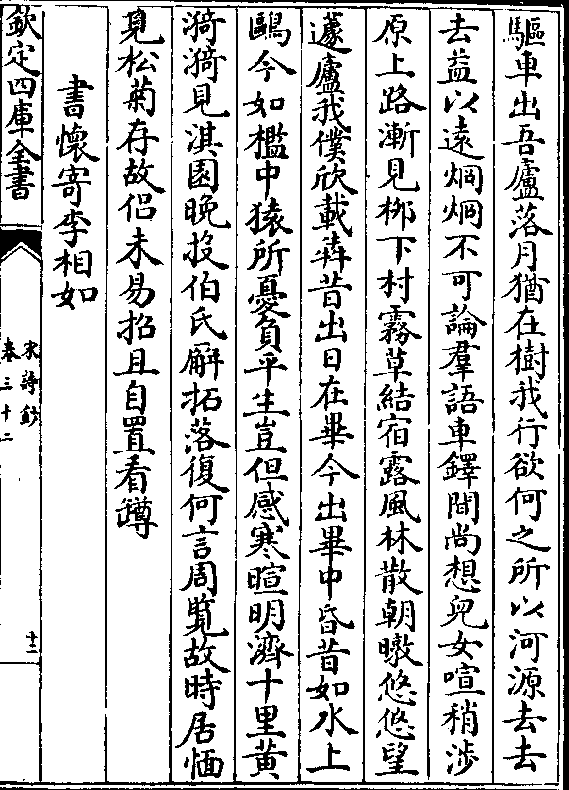 驅車出吾廬落月猶在樹我行欲何之所以河源去去
去益以遠烱烱不可論羣語車鐸間尚想兒女喧稍渉
原上路漸見栁下村霧草結宿露風林散朝暾悠悠望
蘧廬我僕欣載犇昔出日在畢今出畢中昏昔如水上
鷗今如檻中猿所憂負平生豈但感寒暄明濟十里黄
漪漪見淇園晚投伯氏廨拓落復何言周覽故時居恓
覓松菊存故侣未易招且自置看罇
書懷寄李相如
欽定四庫全書
宋詩鈔
卷三十二
十二